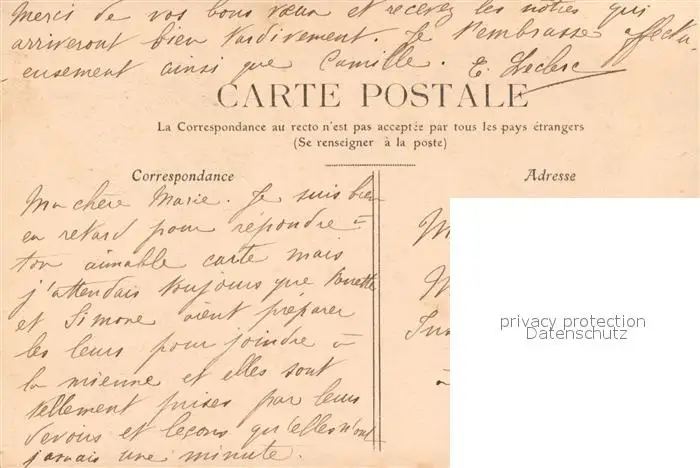 Merci de vos bons vœux et recevez les nôtres qui
arriveront bien tardivement. Je t'embrasse affectu-
eusement ainsi que Camille. E. Leclerc
CARTE POSTALE
La Correspondance au recto n'est pas acceptée par tous les pays étrangers
(Se renseigner à la poste)
Correspondance
Ma chère Marie. Je suis bien
en retard pour répondre à
ton aimable carte mais
j'attendais toujours que
et Simone aient préparer
les leurs pour joindre à
la mienne et elles sont
tellement prises par leurs
devoirs et leçons qu'elles n'ont
jamais une minute.
Adresse
à
privacy protection
Datenschutz